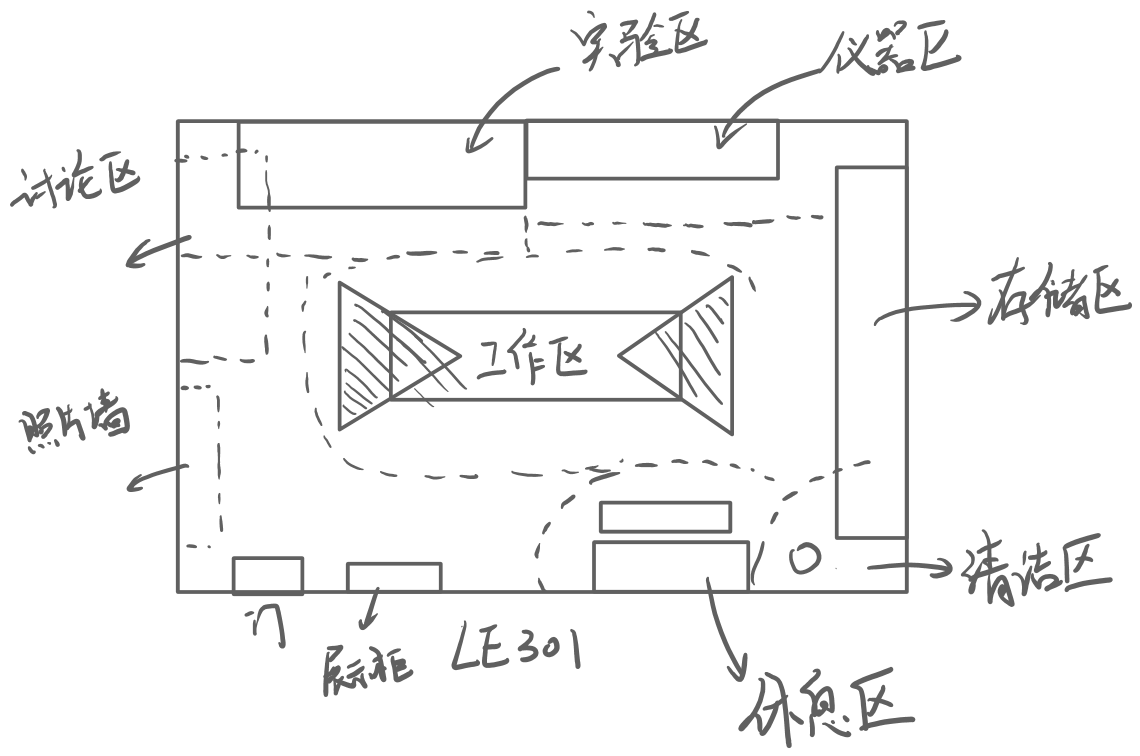 实验区
仪器区
讨论区
存储区
工作区
照片墙
清洁区
门
展示柜
LE301
休息区